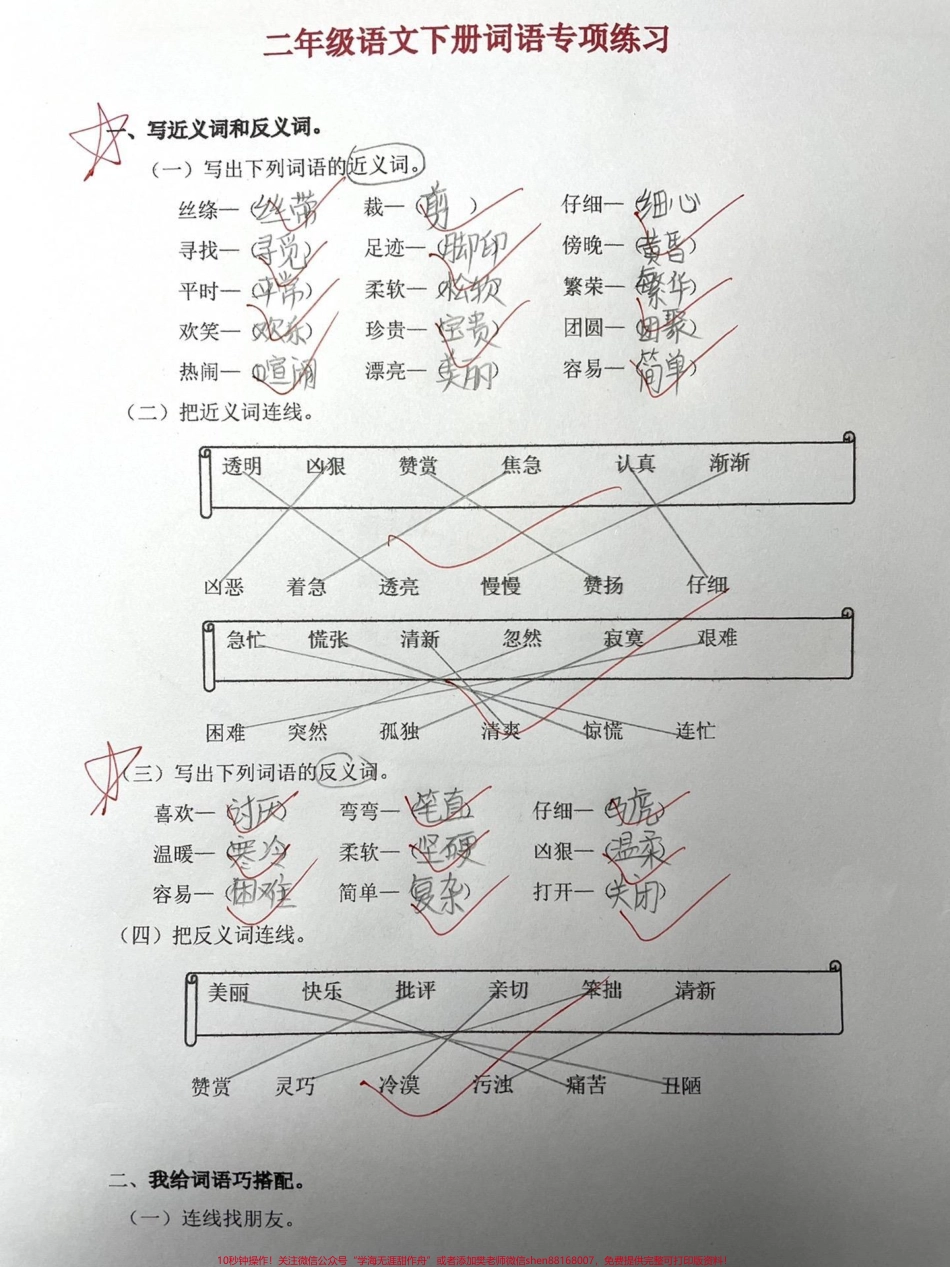 二年级语文下册词语专项练习
一、写近义词和反义词。
（一）写出下列词语的近义词。
丝绦—（丝带） 裁—（剪） 仔细—（细心）
寻找—（寻觅） 足迹—（脚印） 傍晚—（黄昏）
平时—（平常） 柔软—（松软） 繁荣—（繁华）
欢笑—（欢乐） 珍贵—（宝贵） 团圆—（团聚）
热闹—（喧闹） 漂亮—（美丽） 容易—（简单）
（二）把近义词连线。
透明 凶狠 赞赏 焦急 认真 渐渐
凶恶 着急 透亮 慢慢 赞扬 仔细
急忙 慌张 清新 忽然 寂寞 艰难
困难 突然 孤独 清爽 惊慌 连忙
（三）写出下列词语的反义词。
喜欢—（讨厌） 弯弯—（笔直） 仔细—（马虎）
温暖—（寒冷） 柔软—（坚硬） 凶狠—（温柔）
容易—（困难） 简单—（复杂） 打开—（关闭）
（四）把反义词连线。
美丽 快乐 批评 亲切 笨拙 清新
赞赏 灵巧 冷漠 污浊 痛苦 丑陋
二、我给词语巧搭配。
（一）连线找朋友。
10秒钟操作！关注微信公众号“学海无涯甜作舟”或者添加樊老师微信shen88168007，免费提供完整可打印版资料！